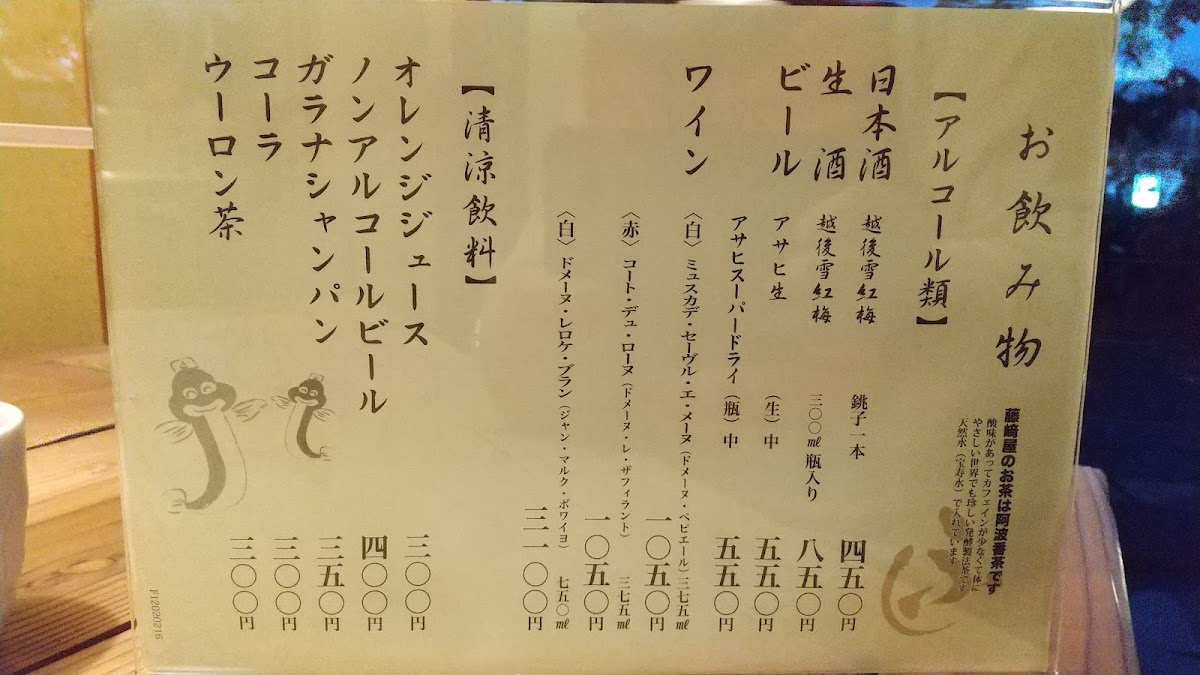 お飲み物
藤﨑屋のお茶は阿波番茶です
酸味があってカフェインが少なくて体に
やさしい世界でも珍しい発酵製法茶です
天然水（宝寿水）で入れています
【アルコール類】
日本酒 越後雪紅梅 銚子一本 四五〇円
生酒 越後雪紅梅 三〇〇㎖瓶入り 八五〇円
ビール アサヒ生 （生）中 五五〇円
アサヒスーパードライ （瓶）中 五五〇円
ワイン 〈白〉ミュスカデ・セーヴル・エ・メーヌ（ドメーヌ・ペピエール）三七五㎖
一〇五〇円
〈赤〉コート・デュ・ローヌ（ドメーヌ・レ・ザフィラント） 三七五㎖
一〇五〇円
〈白〉ドメーヌ・レロケ・ブラン（ジャン・マルク・ボワイヨ） 七五〇㎖
三一〇〇円
【清涼飲料】
オレンジジュース 三〇〇円
ノンアルコールビール 四〇〇円
ガラナシャンパン 三五〇円
コーラ 三〇〇円
ウーロン茶 三〇〇円
F12020216